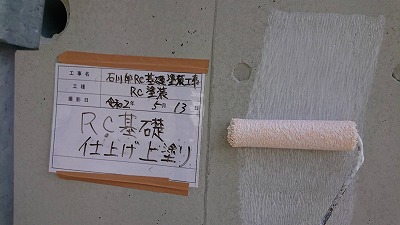 工事名 石川邸RC基礎塗装工事
工種 RC塗装
撮影日 令和2年 5月 13日
RC基礎
仕上げ上塗り